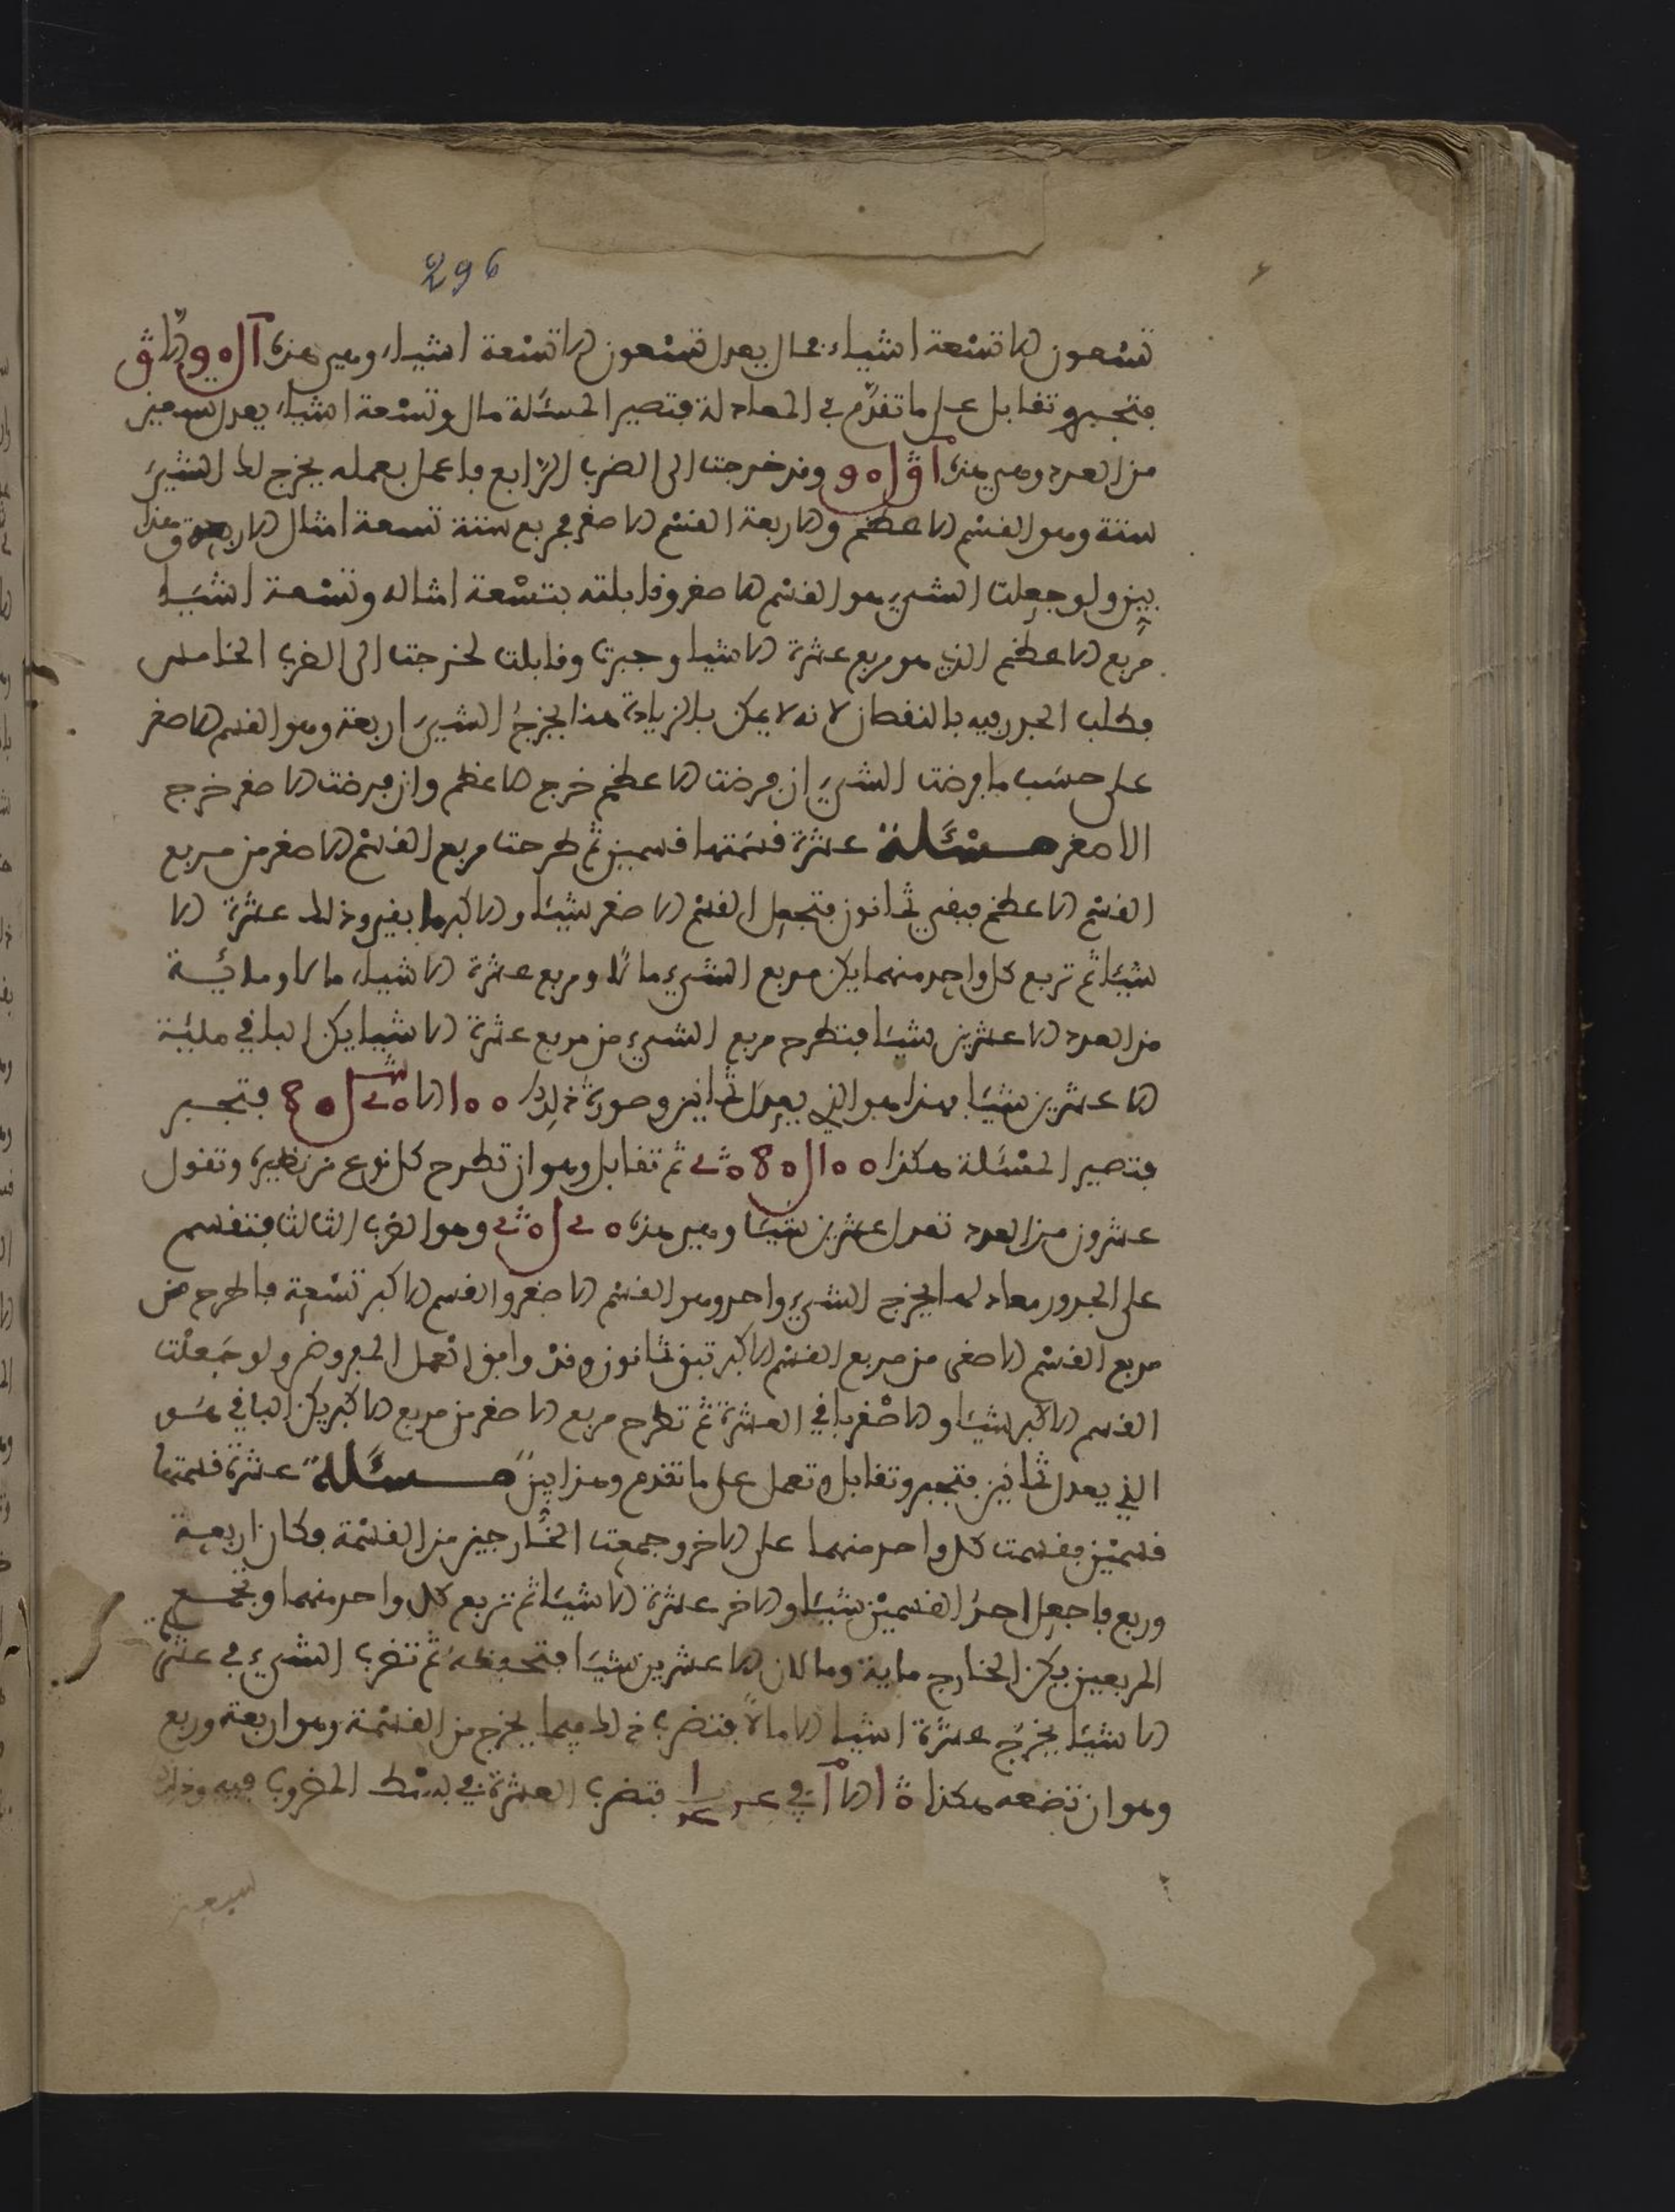 296
تسعون الا تسعة اشياء بمال يعدل تسعون الا تسعة اشياء وهي هذه
فتجبر وتقابل على ما تقدم في المعادلة فتصير المسئلة مال وتسعة اشياء يعدل تسعين
من العدد وهي هذه وقد خرجت الى الضرب الرابع فاعمل بعمله يخرج لك الشيء
ستة وهو القسم الاعظم والاربعة القسم الاصغر فمربع ستة تسعة امثال الاربعة وهذا
بين ولو جعلت الشيء هو القسم الاصغر وقابلته بتسعة امثاله وتسعة اشياء
مربع الاعظم الذي هو مربع عشرة الا شيا وجبرت وقابلت لخرجت الى الضرب الخامس
فطلب الجذر فيه بالنقصان لانه لا يمكن بالزيادة هنا يخرج الشيء اربعة وهو القسم الاصغر
على حسب ما فرضت الشيء ان فرضت الاعظم خرج الاعظم وان فرضت الاصغر خرج
الاصغر مسئلة عشرة قسمتها قسمين ثم طرحت مربع القسم الاصغر من مربع
القسم الاعظم فبقي ثمانون فتجعل القسم الاصغر شيئا والاكبر ما بقي وذلك عشرة الا
شيئا ثم تربع كل واحد منهما يكن مربع الشيء مالا ومربع عشرة الا شياء مالا ومائة
من العدد الا عشرين شيئا فتطرح مربع الشيء من مربع عشرة الا شيا يكن الباقي مائة
الا عشرين شيئا فهذا هو الذي يعدل ثمانين وصورة ذلك 100 الا فتجبر
فتصير المسئلة هكذا 100 ثم تقابل وهو ان تطرح كل نوع من نظيره وتقول
عشرون من العدد تعدل عشرين شيئا وهي هذه وهو الضرب الثالث فتقسم
على الجذور معادلها يخرج الشيء واحد وهو القسم الاصغر والقسم الاكبر تسعة فاطرح من
مربع القسم الاصغر من مربع القسم الاكبر تبق ثمانون وقد وافق العمل المفروض ولو جعلت
القسم الاكبر شيئا والاصغر باقي العشرة ثم تطرح مربع الاصغر من مربع الاكبر يكن الباقي هو
الذي يعدل ثمانين فتجبر وتقابل وتعمل على ما تقدم وهذا بين مسئلة عشرة قسمتها
قسمين فقسمت كل واحد منهما على الاخر وجمعت الخارجين من القسمة فكان اربعة
وربع فاجعل احد القسمين شيئا والاخر عشرة الا شيئا ثم تربع كل واحد منهما وتجمع
المربعين يكن الخارج ماية ومالان الا عشرين شيئا فتحفظه ثم تضرب الشيء في عشرة
الا شيئا يخرج عشرة اشيا الا مالا فتضرب ذلك فيما يخرج من القسمة وهو اربعة وربع
وهو ان تضعه هكذا في فتضرب العشرة في بسط المضروب فيه وذلك
سبعة